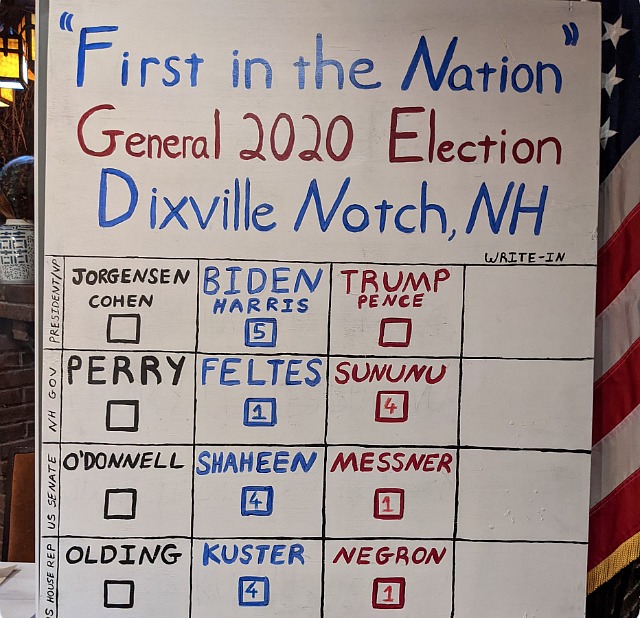 "First in the Nation"
General 2020 Election
Dixville Notch, NH
WRITE-IN
PRESIDENT/VP
JORGENSEN
COHEN
BIDEN
HARRIS
5
TRUMP
PENCE
NH GOV.
PERRY
FELTES
1
SUNUNU
4
US SENATE
O'DONNELL
SHAHEEN
4
MESSNER
1
US HOUSE REP
OLDING
KUSTER
4
NEGRON
1